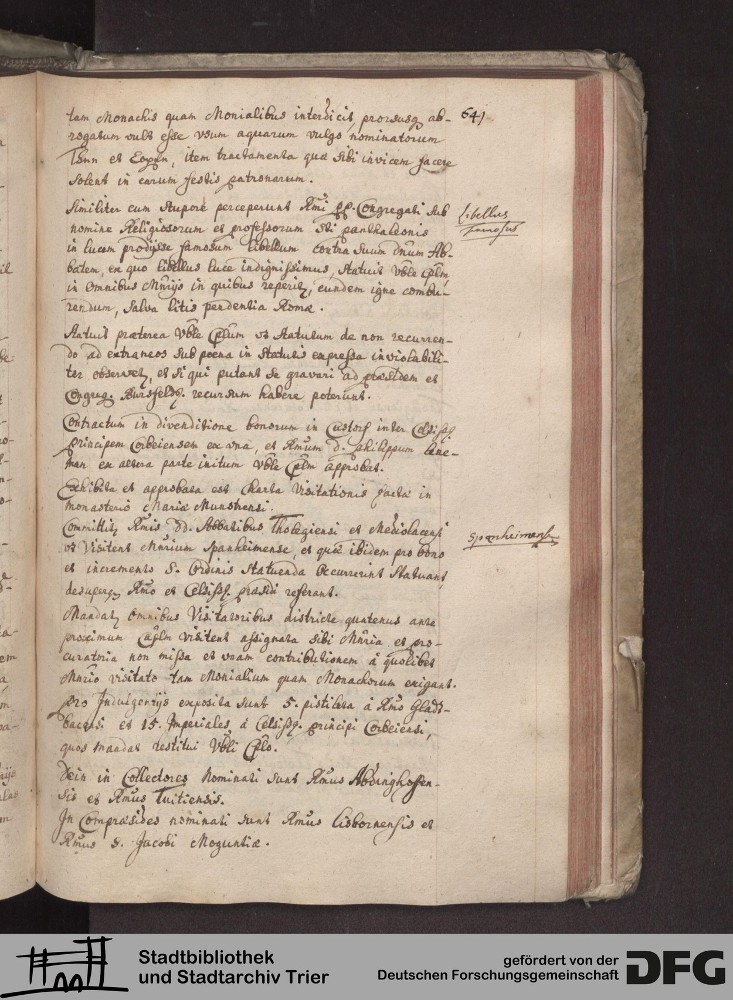 641
tam Monachis quam Monialibus interdicit prorsusq ab-
rogatum vult esse usum aquarum vulgo nominatorum
et item tractamenta quæ sibi invicem facere
solent in earum festis patronarum.
Similiter cum stupore perceperunt Rmi PP. Congregati sub
nomine Religiosorum et professorum Sti pantaleonis
in lucem prodijsse famosum libellum contra suum Dnum Ab-
batem, ex quo libellus luce indignissimus, statuit Vble Cplm
in omnibus Mnrijs in quibus reperitr, eundem igne combu-
rendum, salva litis pendentia Romæ.
Libellus
famosus
Statuit præterea Vble Cplum ut statutum de non recurren-
do ad extraneos sub poena in statutis expressa inviolabili-
ter observetr, et si qui putant se gravari ad præsidem et
Congreg. Bursfeldg. recursum habere poterunt.
Contractum in divenditione bonorum in inter Celsissg.
principem Corbeiensem ex una, et Rmum D. philippum
man ex altera parte initum Vble Cplm approbat.
Exhibita et approbata est Charta Visitationis factæ in
monasterio Mariæ Munstrensi.
Committitr Rmis DD. Abbatibus Tholegiensi et Mediolacensi
ut Visitent Mnrium Spanheimense, et quæ ibidem pro bono
et incremento S. Ordinis statuenda occurrerint statuant,
desuperq Rmo et Celsissg. præsidi referant.
Spanheimense
Mandatr omnibus Visitatoribus districte quatenus ante
proximum Caplm visitent assignata sibi Mnria et pro-
curatoria non missa et unam contributionem à quolibet
Mnrio visitato tam Monialium quam Monachorum exigant.
pro Indulgentijs exposita sunt 5. à Rmo Glad-
bacensi et 15. Imperiales à Celsissg. principi Corbeiensi,
quos mandat restitui Vble Cplo.
Dein in Collectores Nominati sunt Rmus Abdinghoffen-
sis et Rmus Tuitiensis.
In Compræsides nominati sunt Rmus Lisbornensis et
Rmus S. Jacobi Moguntiæ.
Stadtbibliothek
und Stadtarchiv Trier
gefördert von der
Deutschen Forschungsgemeinschaft
DFG